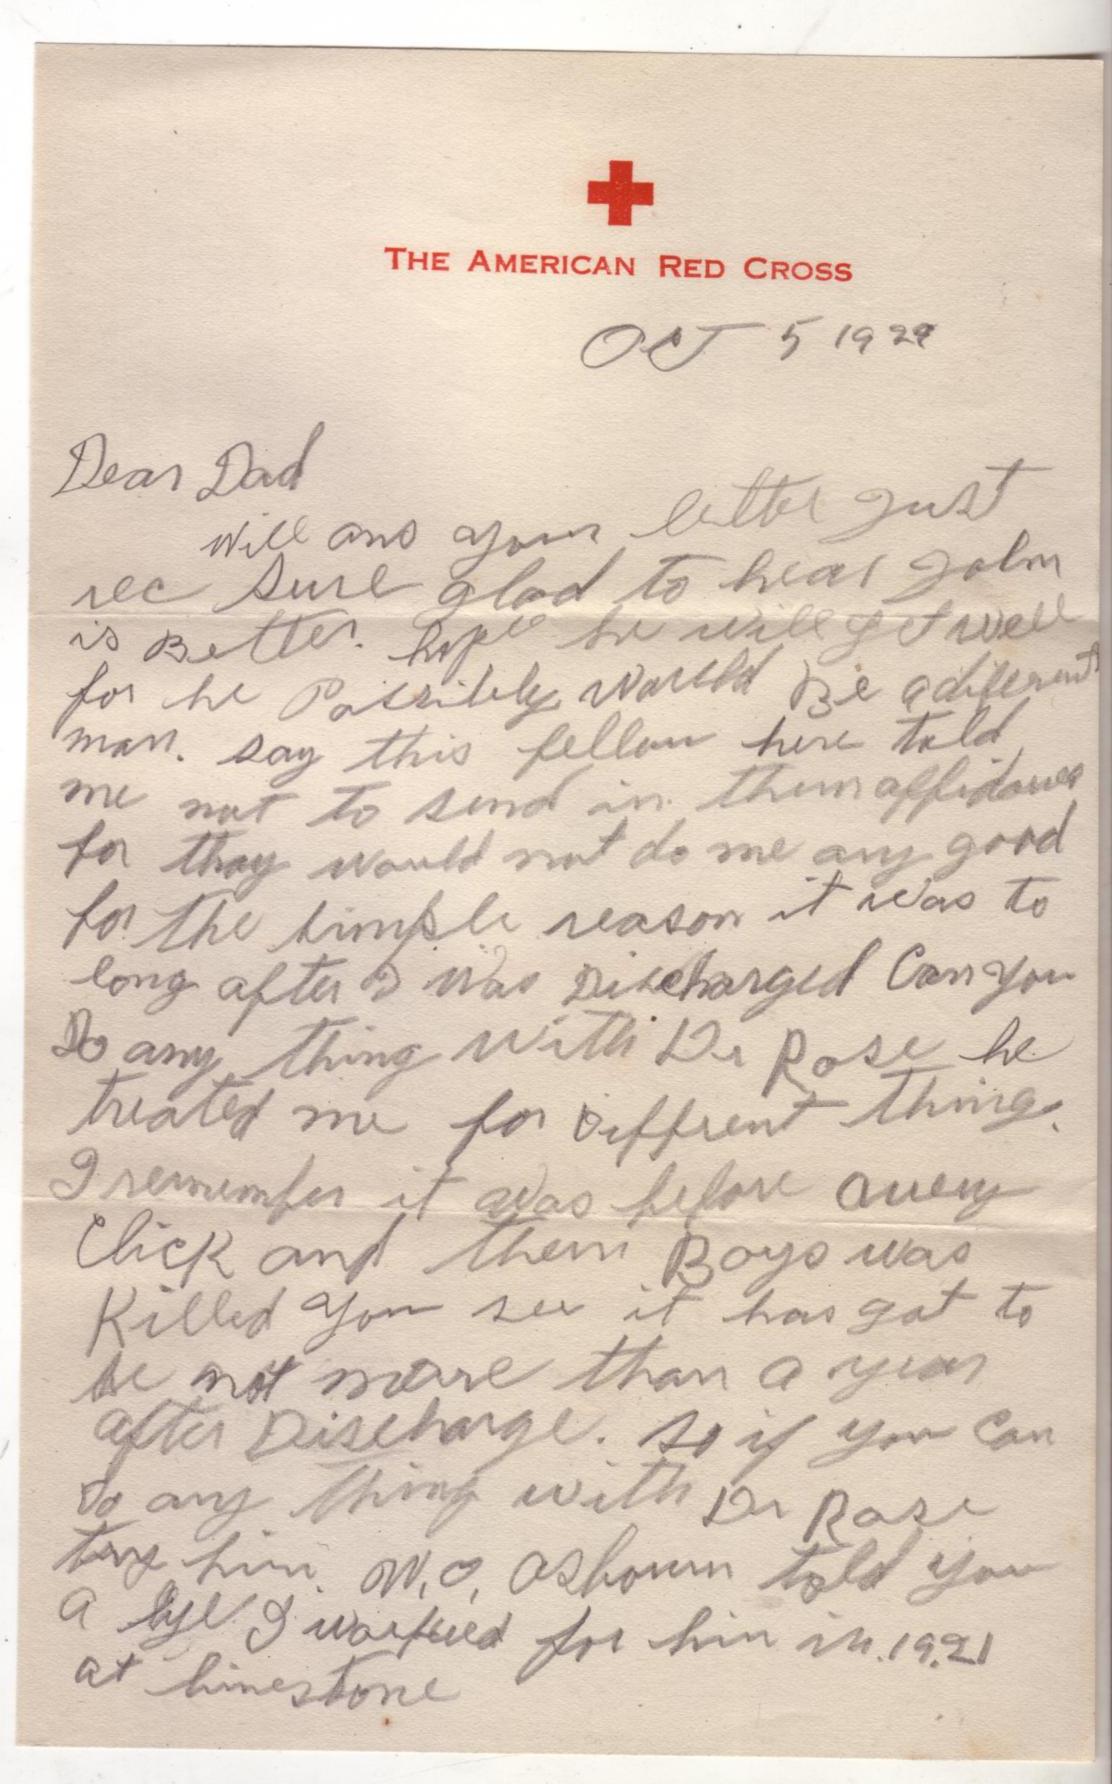 THE AMERICAN RED CROSS
OCT 5 1929
Dear Dad
will ans your letter Just
rec sure glad to hear John
is Better. hope he will get well
for he Possibly would Be a different
man. say this fellow here told
me not to send in them
for thay would not do me any good
for the simple reason it was to
long after I was Discharged Can you
Do any thing with Dr Rose he
treated me for Diffrent thing.
I remember it was before Avery
Click and them Boys was
Killed you see it has got to
be not more than a year
after Discharge. so if you Can
Do any thing with Dr Rose
try him. W.O. Osbourn told you
a lye I worked for him in 1921
at limestone